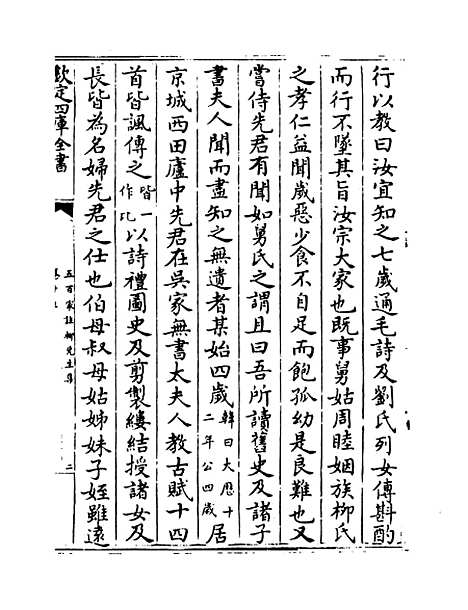 行以教曰汝宜知之七歲通毛詩及劉氏列女傳斟酌
而行不墜其旨汝宗大家也既事舅姑周睦姻族柳氏
之孝仁益聞歲惡少食不自足而飽孤幼是良難也又
嘗侍先君有聞如舅氏之謂且曰吾所讀舊史及諸子
書夫人聞而盡知之無遺者某始四歲韓曰大厯十二年公四歲居
京城西田廬中先君在吳家無書太夫人教古賦十四
首皆諷傳之皆一作比以詩禮圖史及剪製縷結授諸女及
長皆為名婦先君之仕也伯母叔母姑姊妹子姪雖逺
欽定四庫全書
五百家註柳先生集
二